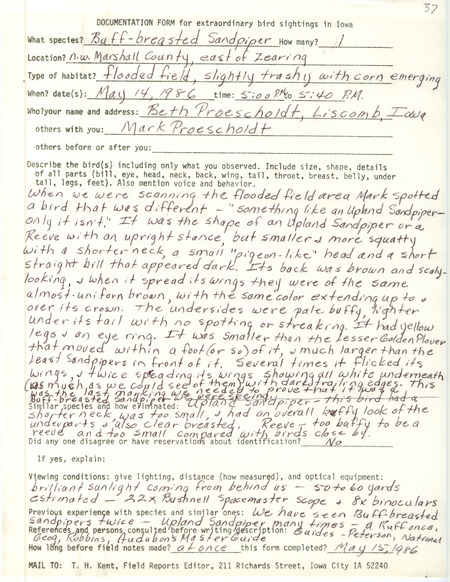 37
DOCUMENTATION FORM for extraordinary bird sightings in Iowa
What species? Buff-breasted Sandpiper How many? 1
Location? n.w. Marshall County, east of Zearing
Type of habitat? flooded field, slightly trashy with corn emerging
When? date(s): May 14, 1986 time: 5:00 P.M. to 5:40 P.M.
Who? your name and address: Beth Proescholdt, Liscomb, Iowa
others with you: Mark Proescholdt
others before or after you:
Describe the bird(s) including only what you observed. Include size, shape, details
of all parts (bill, eye, head, neck, back, wing, tail, throat, breast, belly, under
tail, legs, feet). Also mention voice and behavior.
When we were scanning the flooded field area Mark spotted
a bird that was different - "something like an Upland Sandpiper-
only it isn't." It was the shape of an Upland Sandpiper or a
Reeve with an upright stance, but smaller & more squatty
with a shorter neck, a small "pigeon-like" head and a short
straight bill that appeared dark. Its back was brown and scaly-
looking, & when it spread its wings they were of the same
almost-uniform brown, with the same color extending up to &
over its crown. The undersides were pale buffy, lighter
under its tail with no spotting or streaking. It had yellow
legs & an eye ring. It was smaller than the Lesser Golden Plover
that moved within a foot (or so) of it, & much larger than the
Least Sandpipers in front of it. Several times it flicked its
wings, & twice spreading its wings showing all white underneath
(as much as we could see of them) with dark trailing edges. This
was the last marking we needed to prove that it was a
Buff-breasted Sandpiper we were seeing.
Similar species and how eliminated: Upland Sandpiper - this bird had a
shorter neck, was too small, & had an overall buffy look of the
underparts & also clear breasted. Reeve - too buffy to be a
reeve and too small compared with birds close by.
Did any one disagree or have reservations about identification? No
If yes, explain:
Viewing conditions: give lighting, distance (how measured), and optical equipment:
brilliant sunlight coming from behind us - 50 to 60 yards
estimated - 22x Bushnell Spacemaster scope & 8x binoculars
Previous experience with species and similar ones: We have seen Buff-breasted
Sandpipers twice - Upland Sandpiper many times - a Ruff once.
References and persons consulted before writing description: Guides - Peterson, National
Geog, Robbins, Audubon's Master Guide
How long before field notes made? at once this form completed? May 15, 1986
MAIL TO: T. H. Kent, Field Reports Editor, 211 Richards Street, Iowa City IA 52240